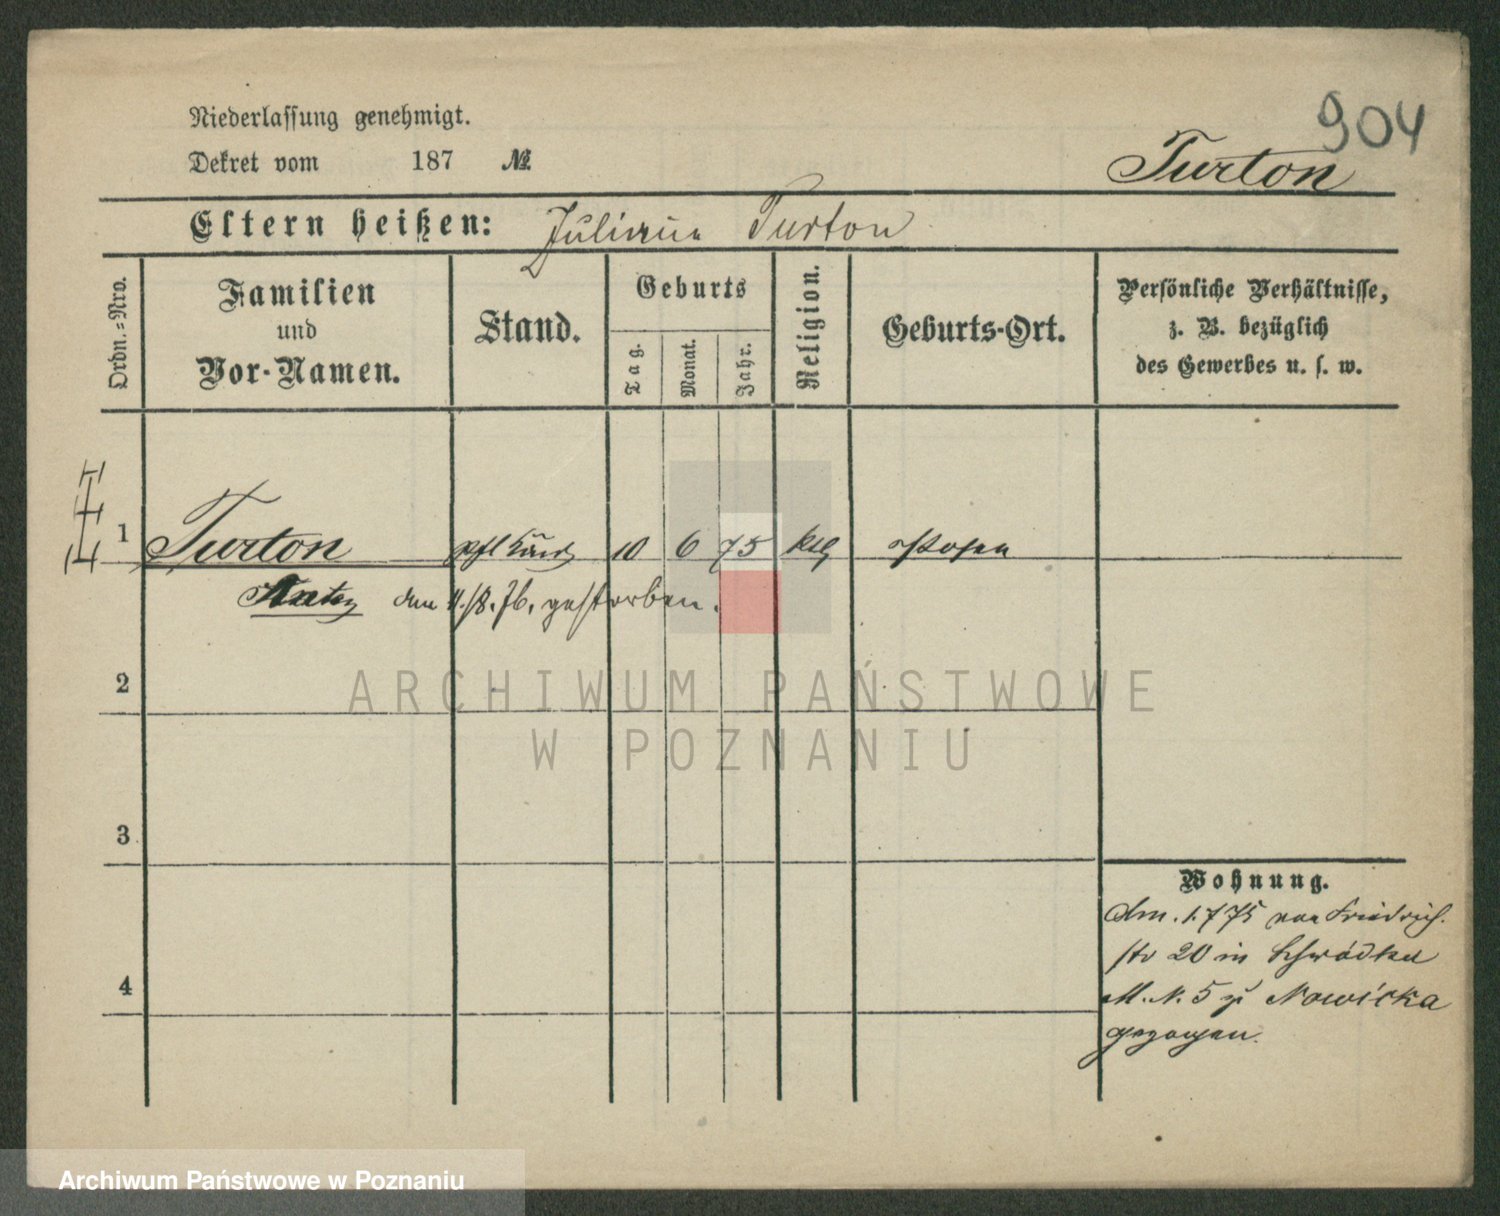 904
Niederlassung genehmigt.
Dekret vom 187 №
Turton
Eltern heißen: Julianna Turton
Ordn.=Nro.
Familien
und
Vor-Namen.
Stand.
Geburts
Tag.
Monat.
Jahr.
Religion.
Geburts-Ort.
Persönliche Verhältnisse,
z. B. bezüglich
des Gewerbes u. s. w.
1 Turton 10 6 75 kth Posen
den 11./8. 76. gestorben.
2
ARCHIWUM PAŃSTWOWE
W POZNANIU
3
4
Wohnung.
Am. 1.7 75 von Friedrich-
str 20 in
No. 5 zu Nowicka
gezogen.
Archiwum Państwowe w Poznaniu